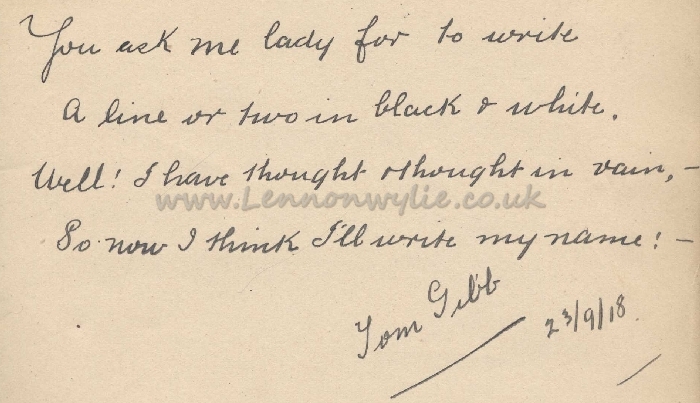 You ask me lady for to write
A line or two in black & white.
Well! I have thought & thought in vain, –
www.Lennonwylie.co.uk
So now I think I'll write my name! –
Tom Gibb
23/9/18.